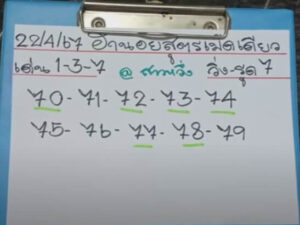 22/4/67 ฮานอยสูตรเม็ดเดียว
เด่น 1-3-7 @ สาววิ่ง วิ่ง-รูด 7
70-71-72-73-74
75-76-77-78-79